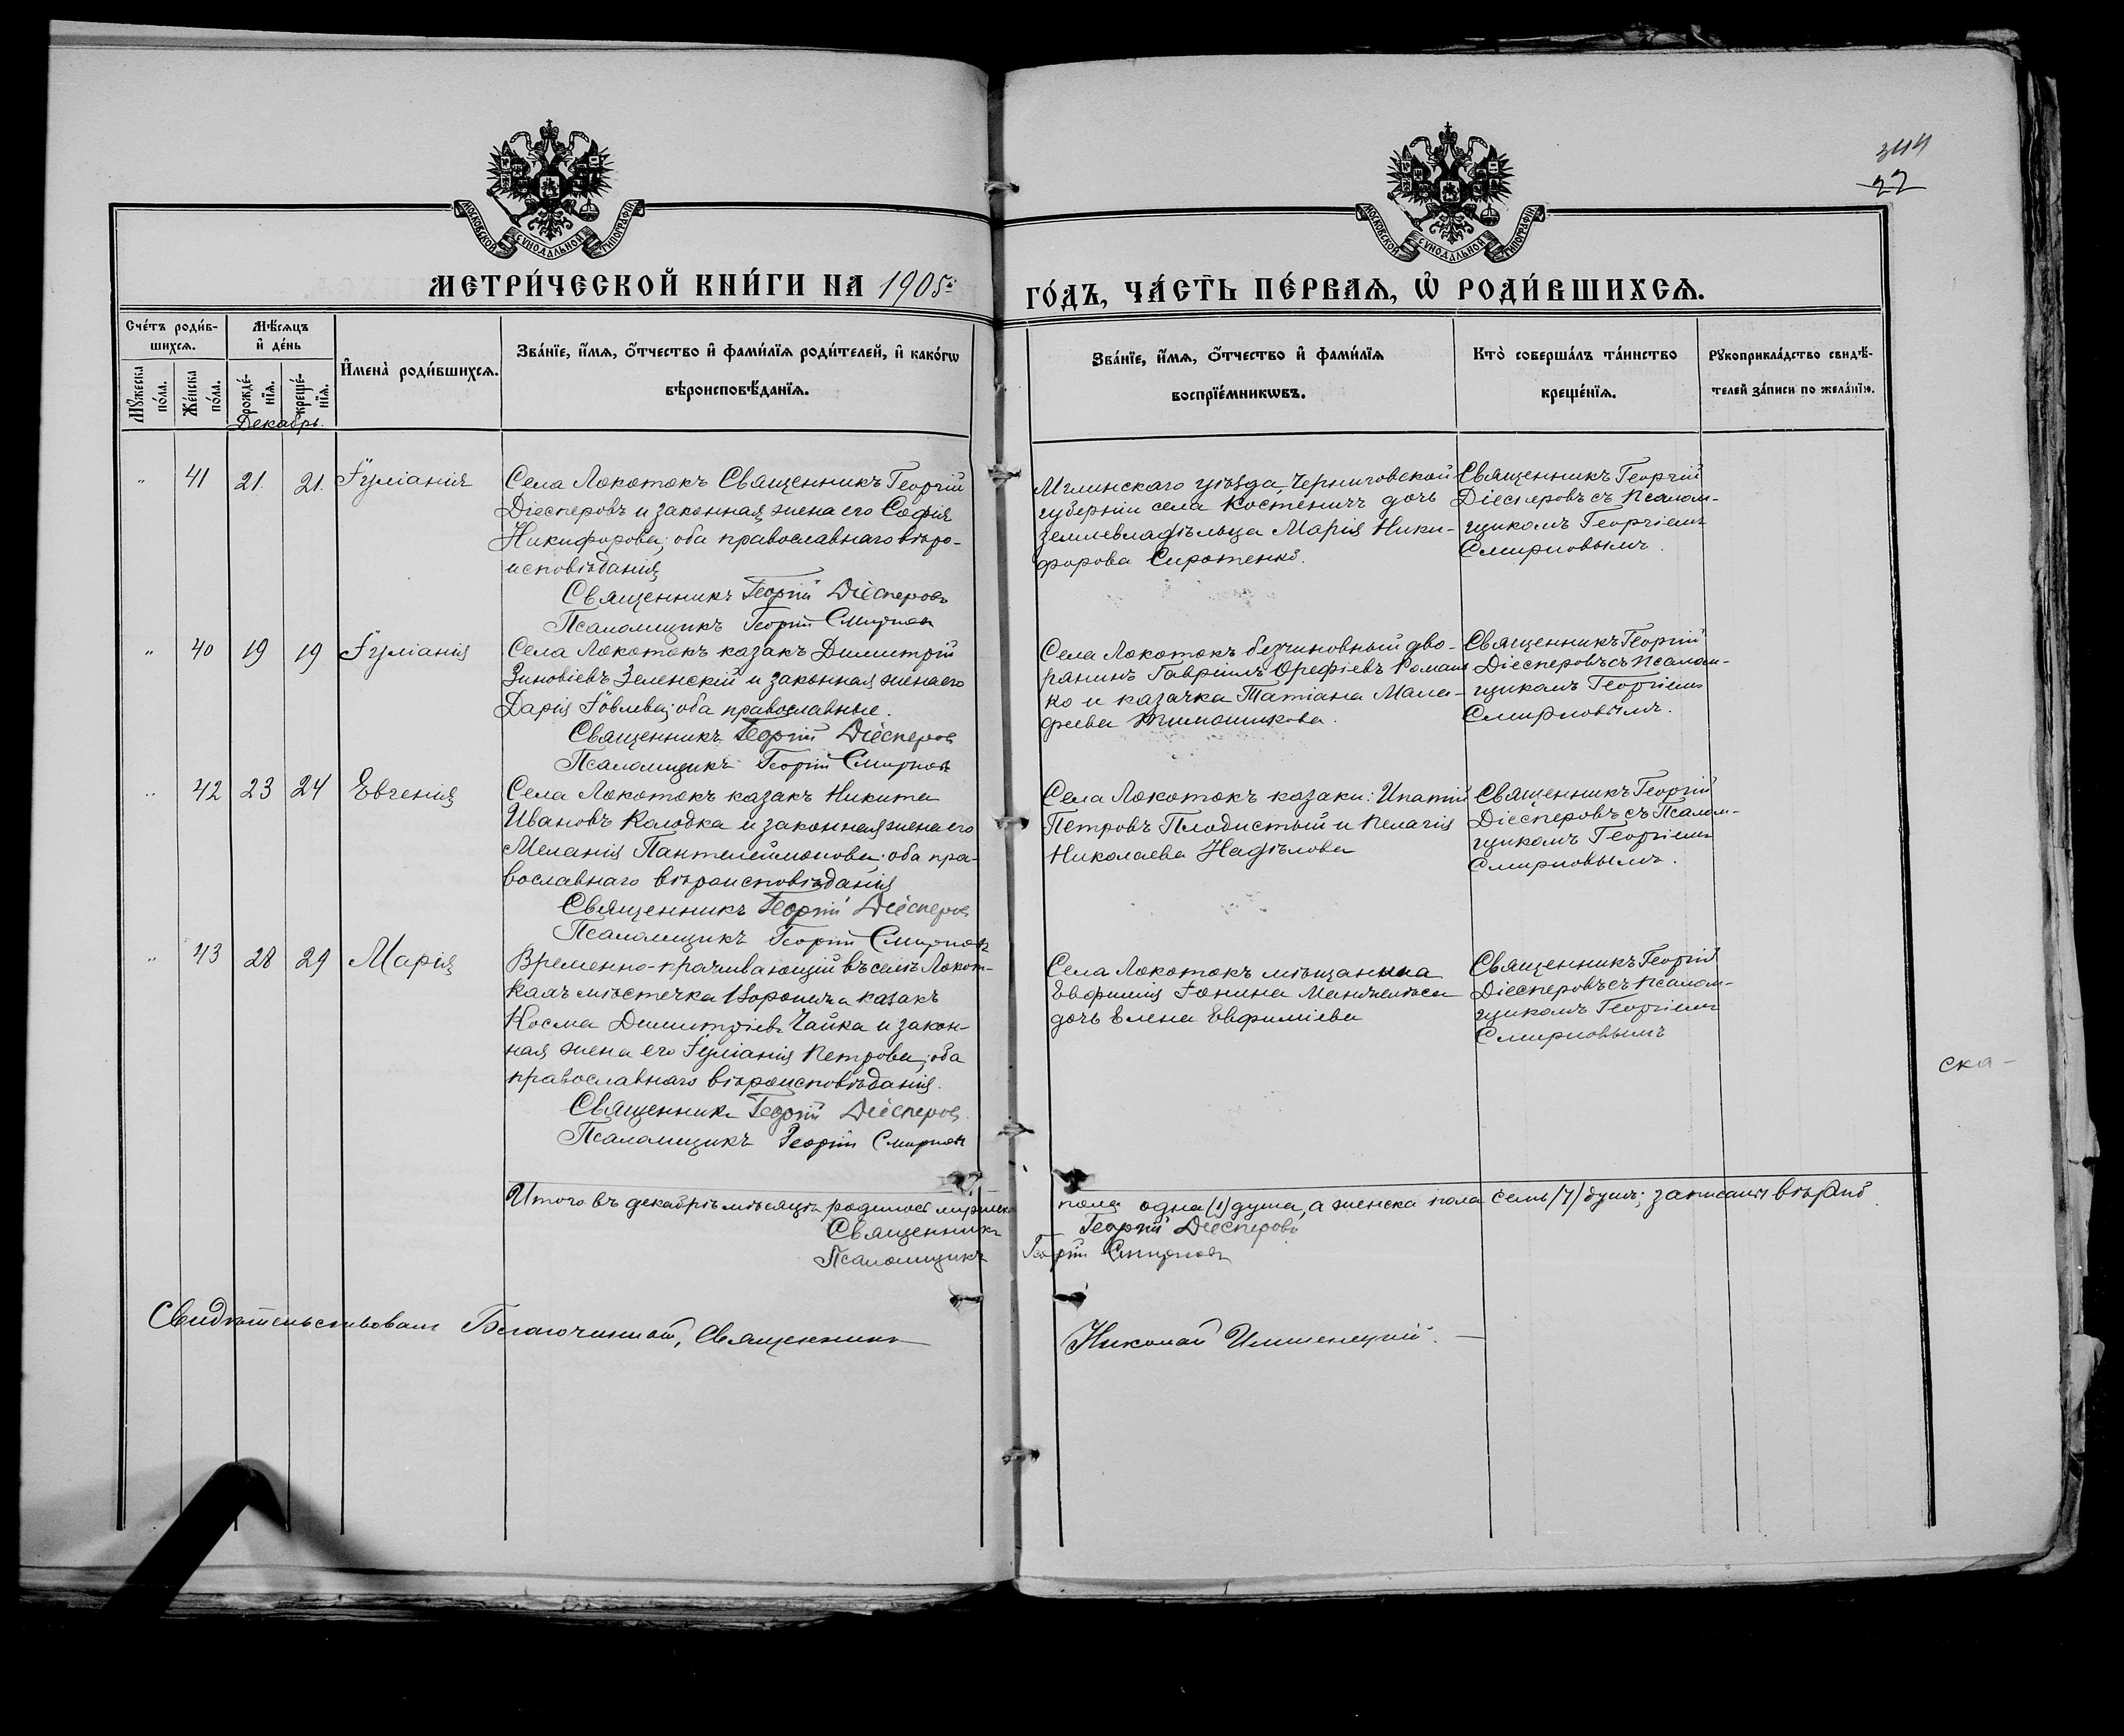 344
22
МОСКОВСКОЙ СѴНОДАЛЬНОЙ ТИПОГРАФІИ
МОСКОВСКОЙ СѴНОДАЛЬНОЙ ТИПОГРАФІИ
МЕТРИ́ЧЕСКОЙ КНИ́ГИ НА 1905й
ГО́ДЪ, ЧА́СТЬ ПЕ́РВАѦ, Ѽ РОДИ́ВШИХСѦ.
Сче́тъ роди́в-
шихсѧ.
Мѣ́сѧцъ
и҆ де́нь
Мꙋ́жеска
по́ла.
Же́нска
по́ла.
рожде́-
нїѧ.
креще́-
нїѧ.
Декабрь.
И҆мена̀ роди́вшихсѧ.
Зва́нїе, и҆́мѧ, ѻ҆́тчество и҆ фами́лїѧ роди́телей, и҆ како́гѡ
вѣроисповѣ́данїѧ.
Зва́нїе, и҆́мѧ, ѻ҆́тчество и҆ фами́лїѧ
воспрїе́мникѡвъ.
Кто̀ соверша́лъ та́инство
креще́нїѧ.
Рꙋкоприкла́дство свидѣ́-
телей за́писи по жела́нїю.
" 41 21. 21. Іуліанія
Села Локотокъ Священникъ Георгій
Діесперовъ и законная жена его Софія
Никифорова; оба православнаго вѣро-
исповѣданія
Священникъ Георгій Діесперовъ
Псаломщикъ Георгій Смирновъ
Мглинскаго уѣзда, Черниговской
губерніи села Костеничъ дочь
землевладѣльца Марія Ники-
форова Сиротенко.
Священникъ Георгій
Діесперовъ съ Псалом-
щикомъ Георгіемъ
Смирновымъ.
" 40 19 19 Іуліанія
Села Локотокъ казакъ Димитрій
Зиновіевъ Зеленскій и законная жена его
Дарія Іовлева; оба православные.
Священникъ Георгій Діесперов
Псаломщикъ Георгій Смирновъ
Села Локотокъ безчиновный дво-
рянинъ Гавріилъ Орефіевъ Романь
ко и казачка Татіана
Священникъ Георгій
Діесперовъ съ Псалом-
щикомъ Георгіемъ
Смирновымъ.
" 42 23 24 Евгенія
Села Локотокъ казакъ Никита
Ивановъ Колодка и законная жена его
Меланія Пантелеймонова; оба пра-
вославнаго вѣроисповѣданія
Священникъ Георгій Діесперов
Псаломщикъ Георгій Смирновъ
Села Локотокъ казаки: Ипатій
Петровъ Плодистый и Пелагія
Николаева Надѣлова
Священникъ Георгій
Діесперовъ съ Псалом-
щикомъ Георгіемъ
Смирновымъ.
" 43 28 29 Марія
Временно-проживающій въ селѣ Локот-
кахъ мѣстечка Воронежа казакъ
Косма Димитріевъ Чайка и закон-
ная жена его Іуліанія Петрова; оба
православнаго вѣроисповѣданія.
Священникъ Георгій Діесперов
Псаломщикъ Георгій Смирновъ
Села Локотокъ мѣщанина
Евфимія Іонина
дочь Елена Евфиміева
Священникъ Георгій
Діесперовъ съ Псалом-
щикомъ Георгіемъ
Смирновымъ
ска-
Итого въ декабрѣ мѣсяцѣ родилось мужеска пола одна (1) душа, а женска пола семь (7) душъ; записаны вѣрно.
Священникъ Георгій Діесперовъ
Псаломщикъ Георгій Смирновъ
Свидѣтельствовалъ Благочинный, Священникъ Николай Имшенецкій.